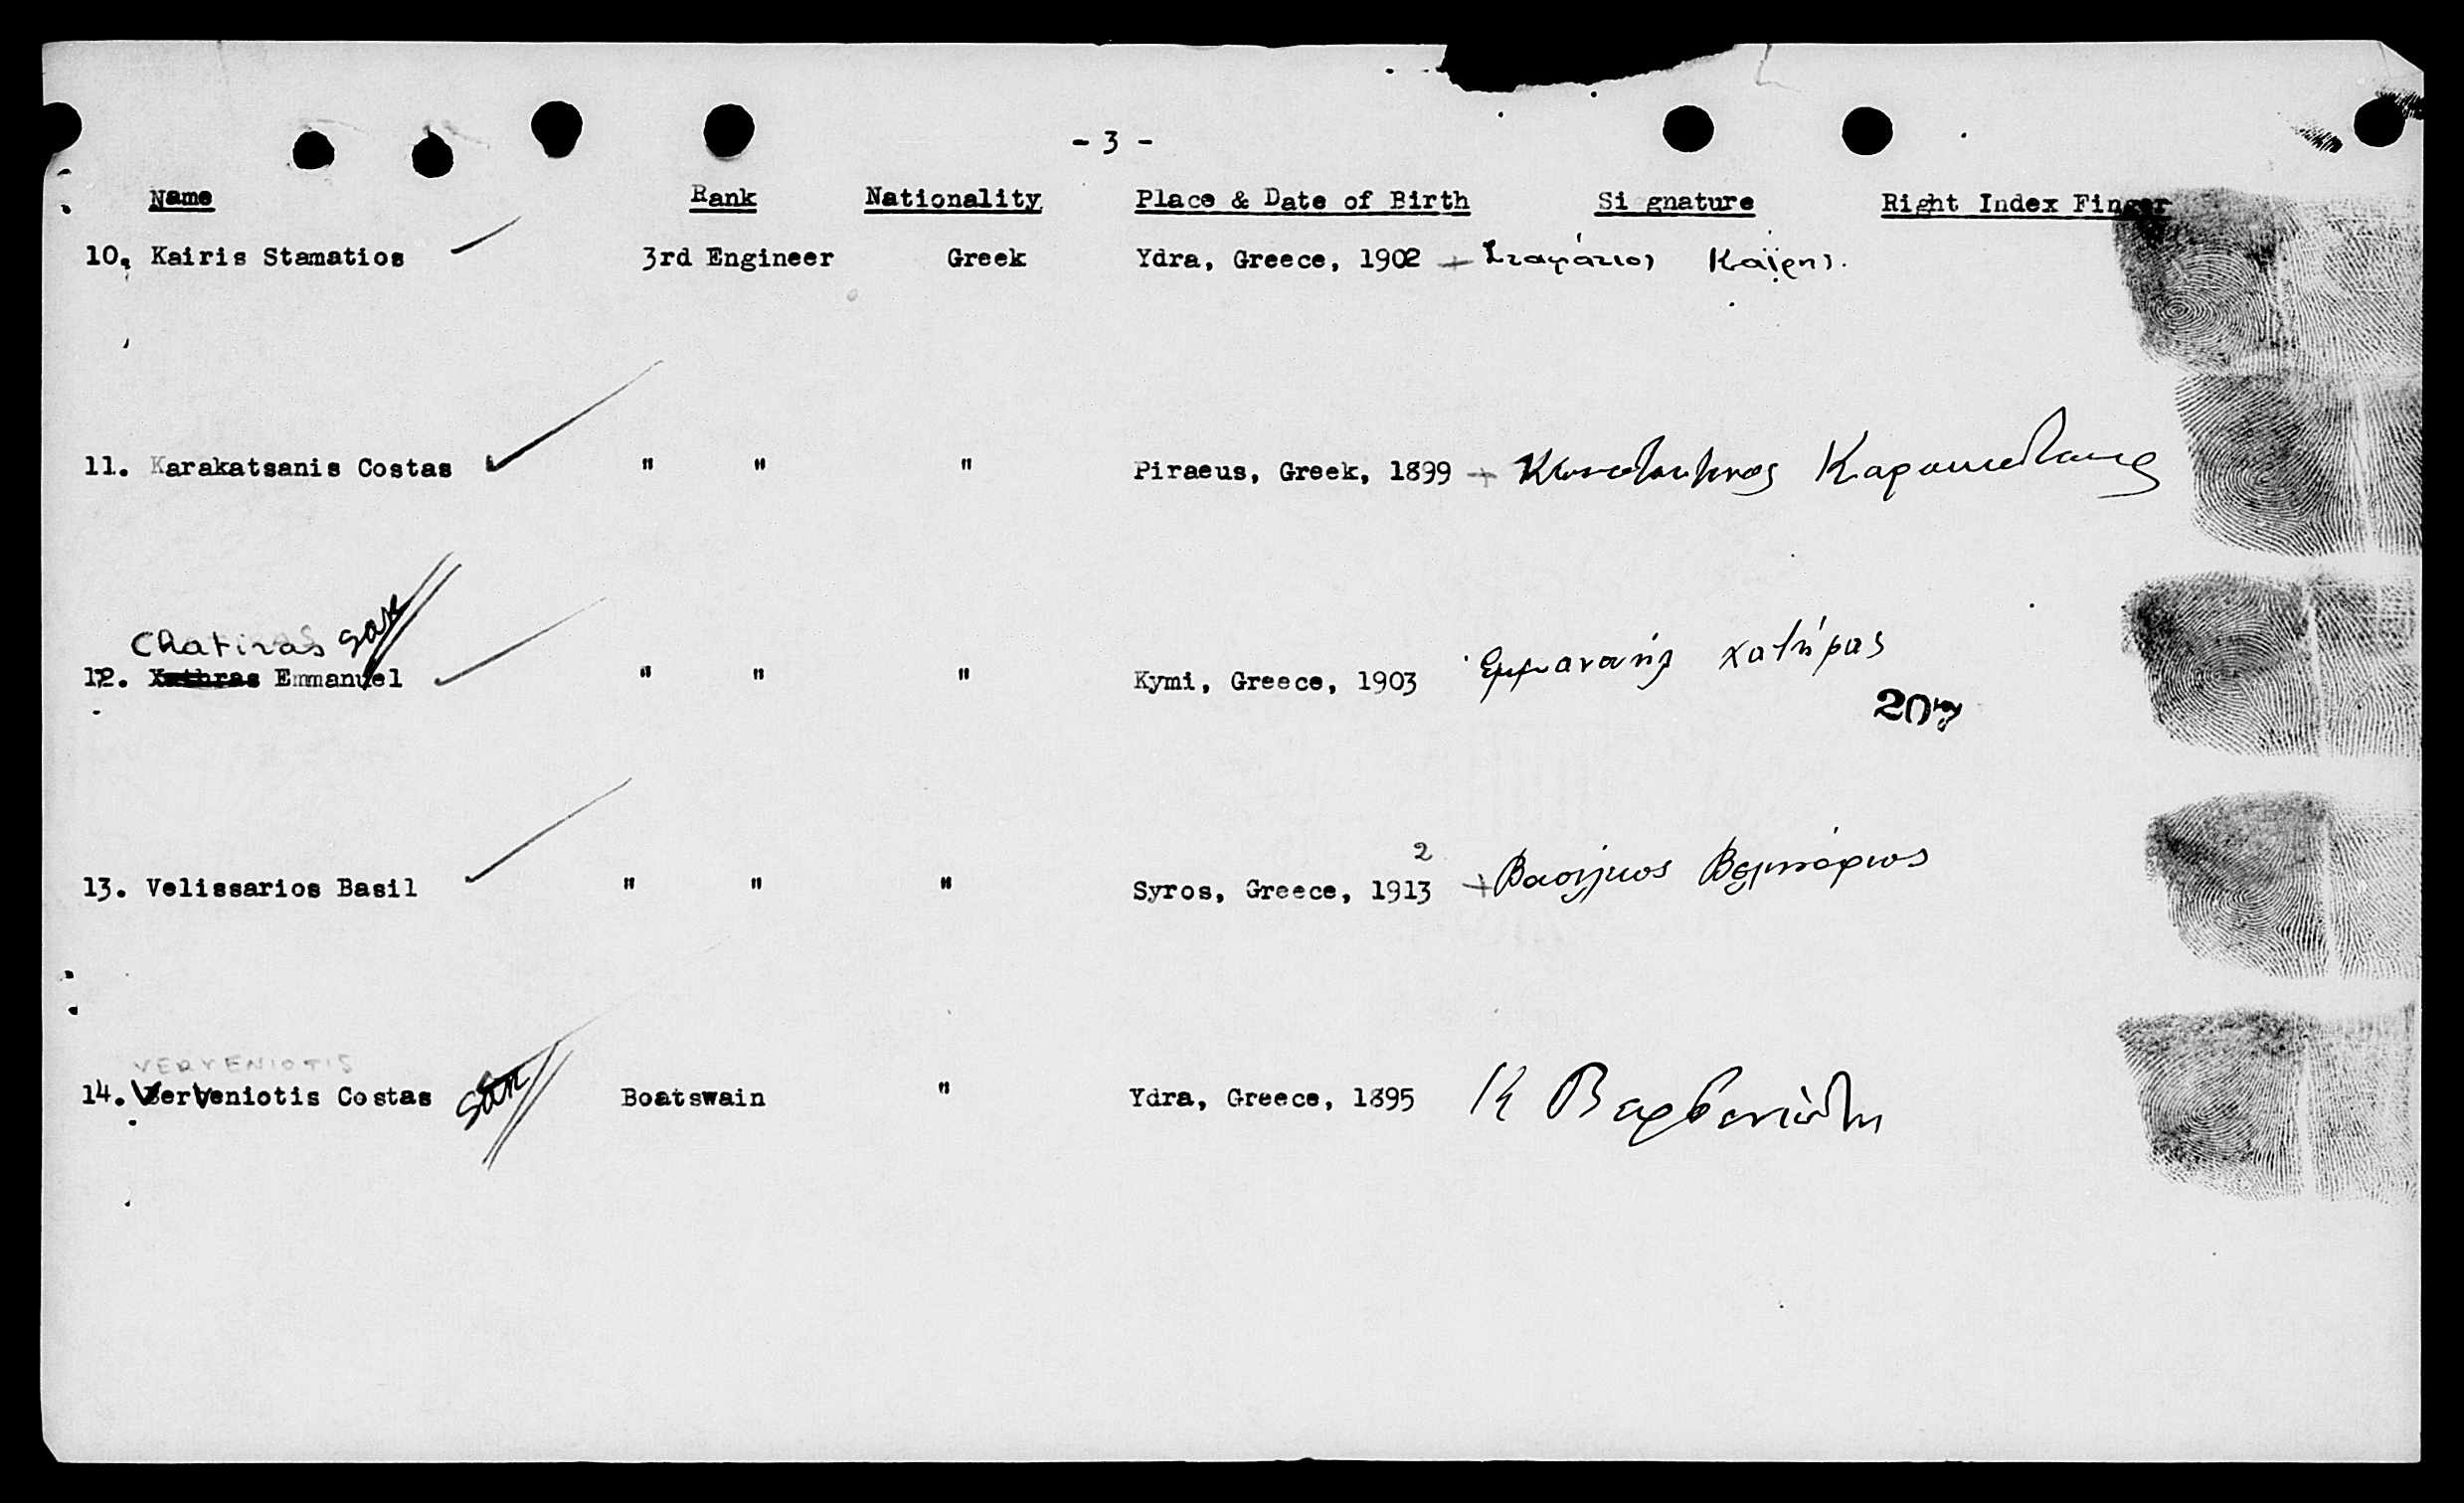 - 3 -
Name Rank Nationality Place & Date of Birth Si gnature Right Index Finger
10. Kairis Stamatios 3rd Engineer Greek Ydra, Greece, 1902 + Σταμάτιος Καΐρης.
11. Karakatsanis Costas " " " Piraeus, Greek, 1899 + Κωνσταντινος Καρακατσανης
Chatiras
12. Emmanuel " " " Kymi, Greece, 1903 Εμμανουήλ Χατήρας
20
2
13. Velissarios Basil " " " Syros, Greece, 1913 + Βασίλειος Βελισσάριος
VERVENIOTIS
14. Verveniotis Costas Boatswain " Ydra, Greece, 1895 Κ Βερβενιώτης